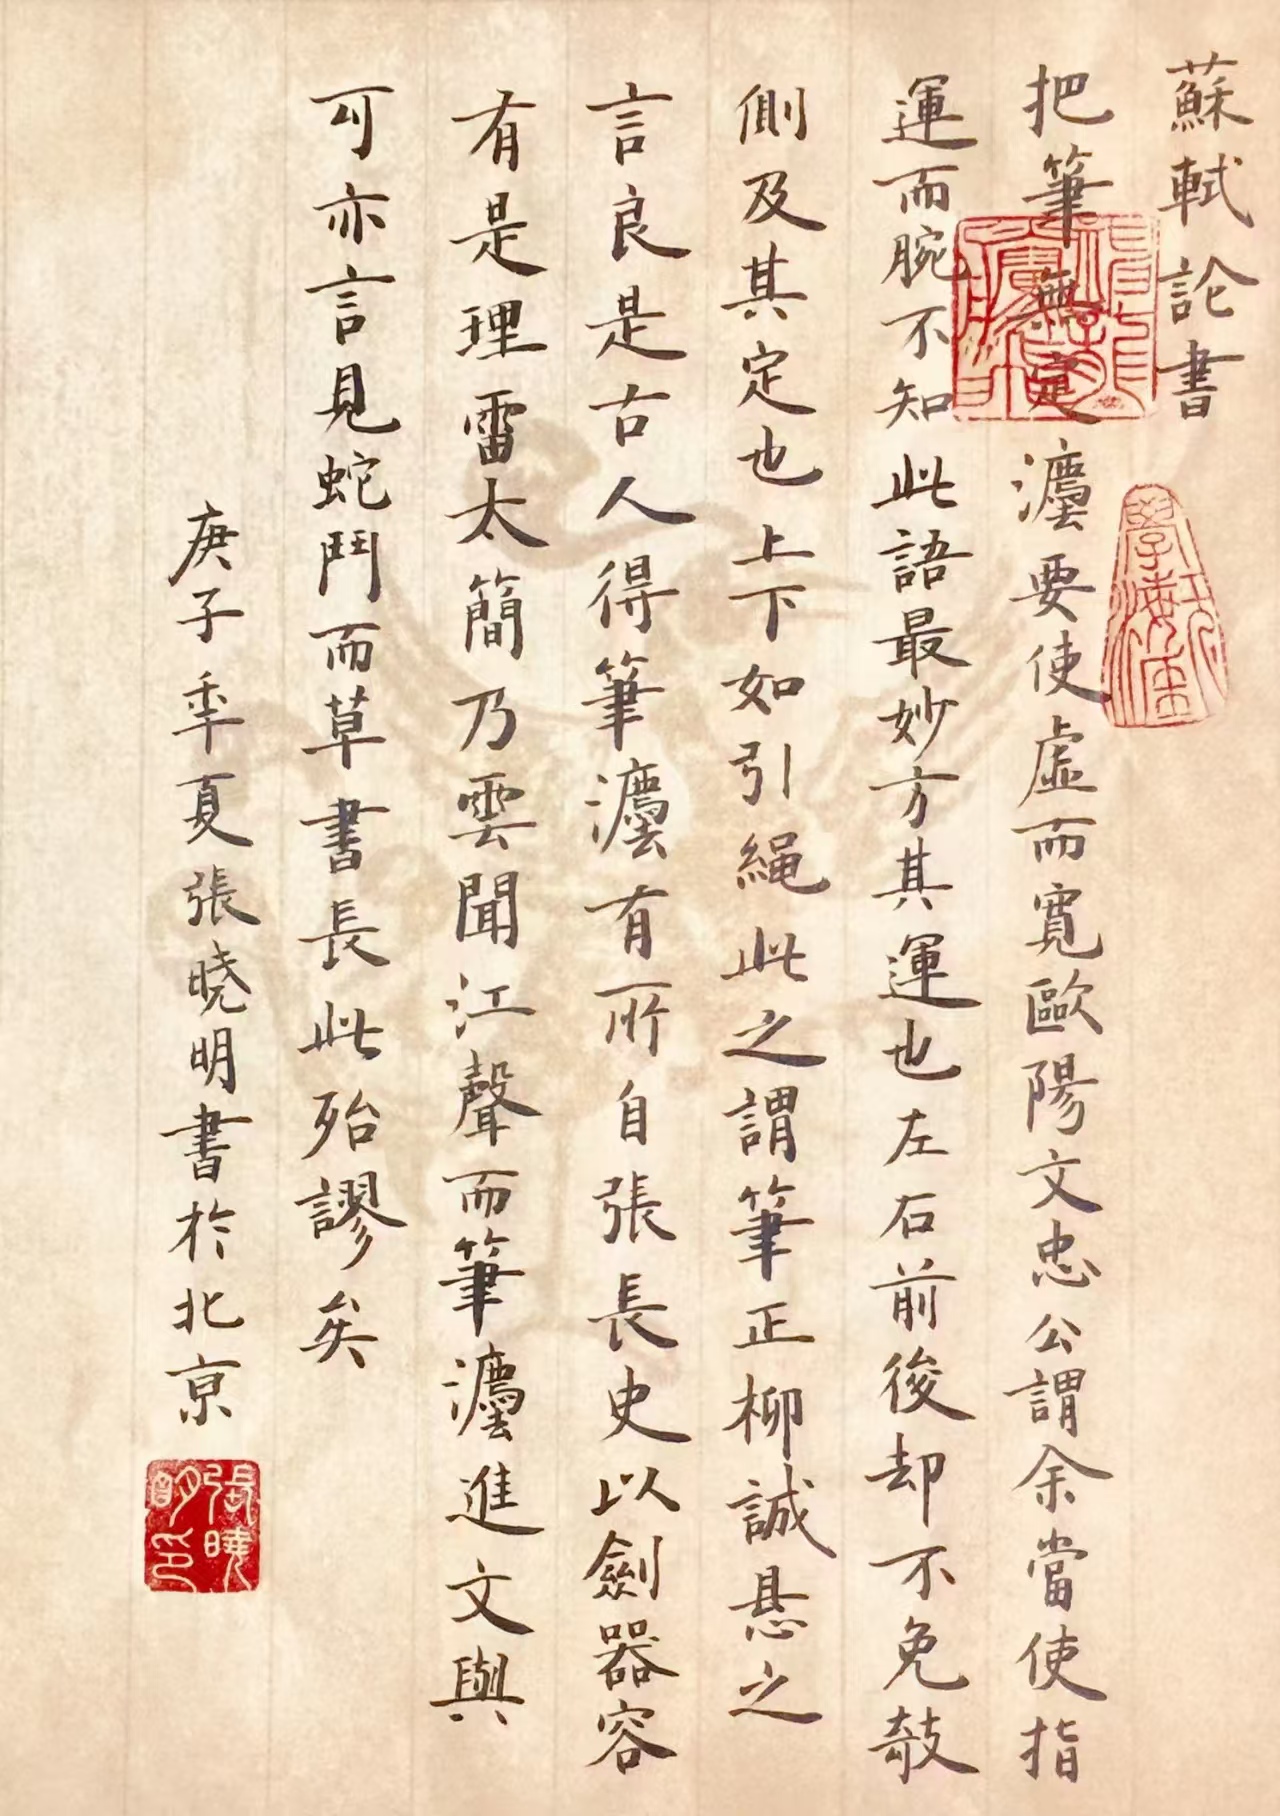 蘇軾論書
把筆無定灋要使虛而寬歐陽文忠公謂余當使指
運而腕不知此語最妙方其運也左右前後却不免攲
側及其定也上下如引繩此之謂筆正柳誠悬之
言良是古人得筆灋有所自張長史以劍器容
有是理雷太簡乃雲聞江聲而筆灋進文與
可亦言見蛇鬥而草書長此殆謬矣
庚子季夏張曉明書於北京
張曉明印